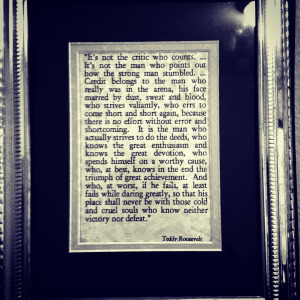 "It's not the critic who counts. ...
It's not the man who points out
how the strong man stumbled. ..
Credit belongs to the man who
really was in the arena, his face
marred by dust, sweat and blood,
who strives valiantly, who errs to
come short and short again, because
there is no effort without error and
shortcoming. It is the man who
actually strives to do the deeds, who
knows the great enthusiasm and
knows the great devotion, who
spends himself on a worthy cause,
who, at best, knows in the end the
triumph of great achievement. And
who, at worst, if he fails, at least
fails while daring greatly, so that his
place shall never be with those cold
and cruel souls who know neither
victory nor defeat."
Teddy Roosevelt